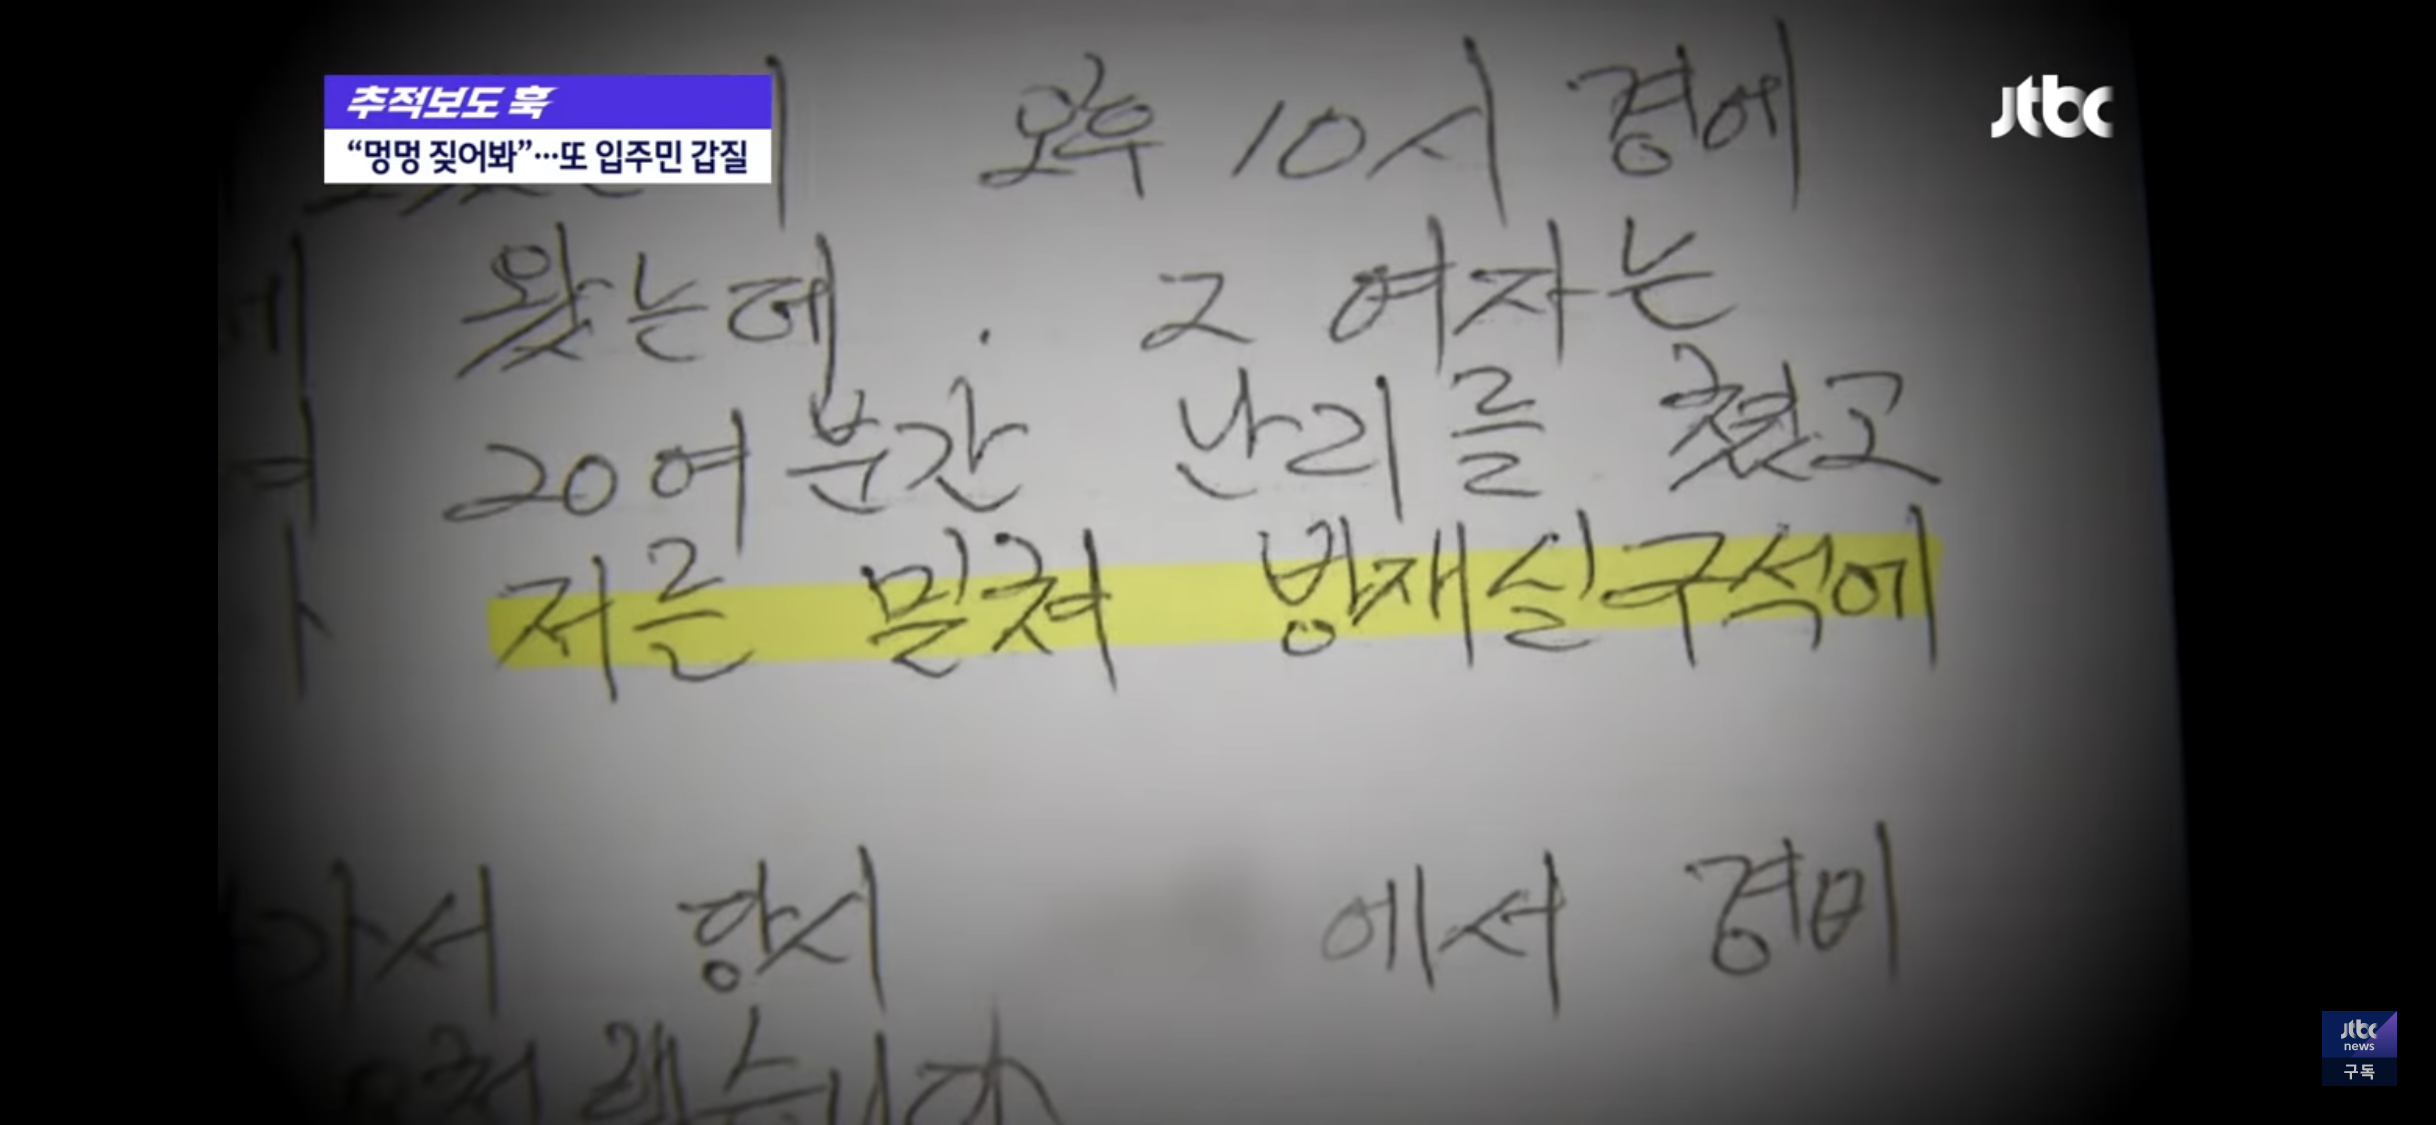 추적보도 훅
“멍멍 짖어봐”…또 입주민 갑질
jtbc
오후 10시 경에
왔는데. 그 여자는
20여분간 난리를 쳤고
저를 밀쳐 방재실구석에
가서 항시 에서 경비
jtbc
news
구독